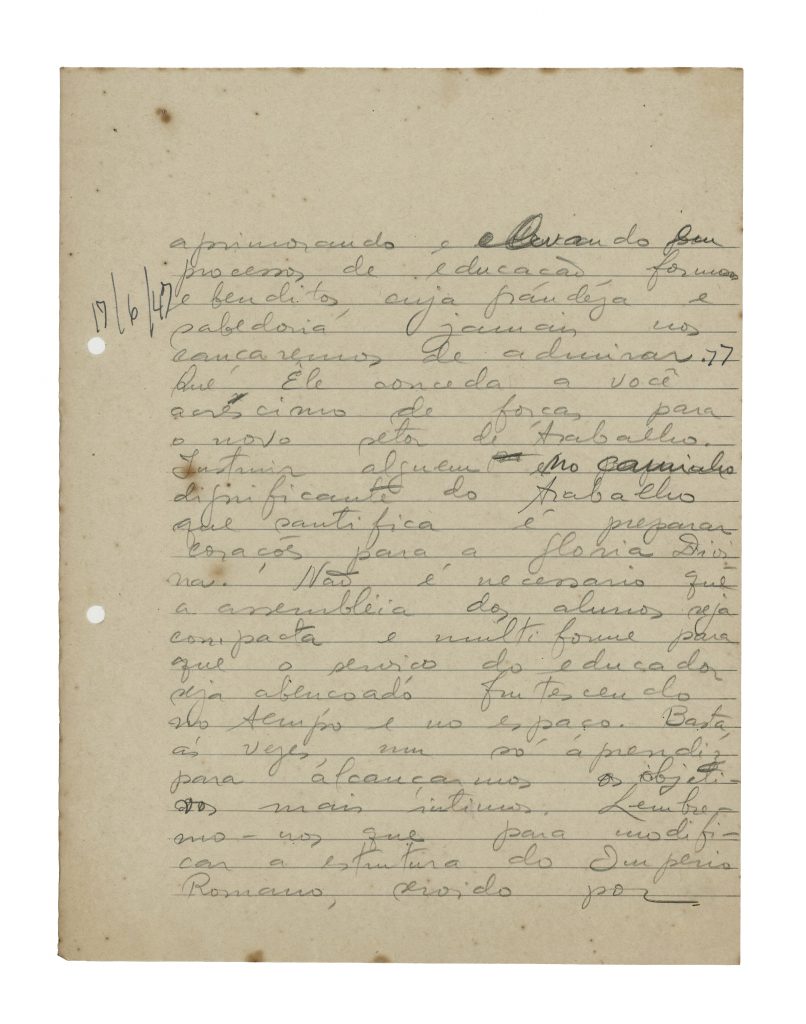 17/6/47
aprimorando e elevando em
processos de educação formosos
e benditos, cuja grandeza e
sabedoria jamais nos
cançaremos de admirar.
Que Êle conceda a você
acréscimo de forças para
o novo setor de trabalho.
Instruir alguem no caminho
dignificante do trabalho
que santifica é preparar
corações para a gloria Divi-
na. Não é necessario que
a assembléia dos alunos seja
compacta e multiforme para
que o serviço do educador
seja abençoado frutescendo
no tempo e no espaço. Basta,
ás vezes, um só aprendiz
para alcançarmos os objeti-
vos mais intimos. Lembre-
mo-nos que para modifi-
car a estrutura do Imperio
Romano, servido por